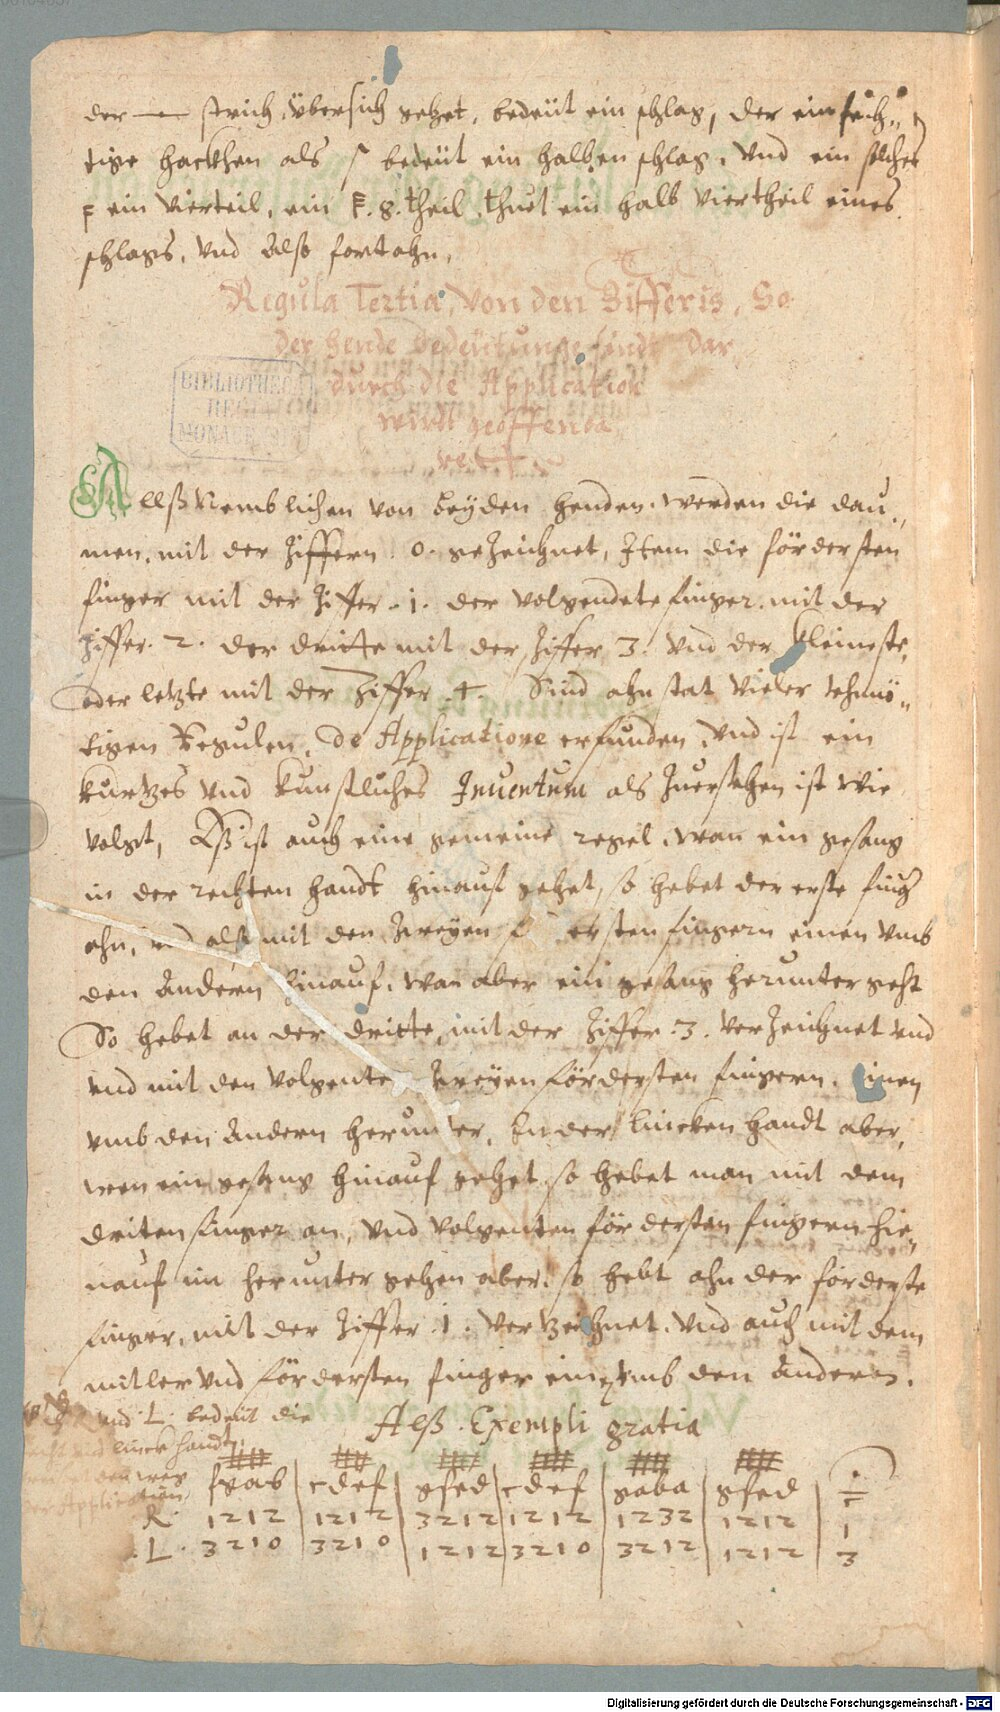 der — strich übersich gehet, bedeüt ein schlag, der einfech„
tige hackhen als ſ bedeüt ein halben schlag. Vnd ein solcher
ein Vierteil, ein 8. theil thuet ein halb Viertheil eines
schlags, Vnd Also fortahn.
Regula Tertia, Von den Zifferis, So
der hende bedeütunge sindt dar
durch die Application
wirdt geoffenba
ret.
Allß Nemblichen von beyden henden. werden die dau„
men, mit der Ziffern .0. geZeichnet, Item die fördersten
finger mit der Ziffer .1. der volgendete finger. mit der
Ziffer. 2. der dritte mit der Ziffer 3. Vnd der kleineste,
oder letzte mit der Ziffer 4. Sind ahn stat Vieler
tigen Regulen, de Applicatione erfunden, Vnd ist ein
kurtzes Vnd kunstliches Inuentum als Zuersehen ist wie
volgt, Eß ist auch eine gemeine regel. wan ein gesang
in der rechten handt hinauf gehet, so hebet der erste fing
ahn, vnd alß mit den Zweyen ersten fingern einen vmb
den Andern hinauf. Wan aber ein gesang herunter geht
So hebet an der dritte, mit der Ziffer .3. VerZeichnet vnd
vnd mit den volgenten Zweyen fördersten fingern. Einen
vmb den Andern herunter, In der lincken handt aber,
wen ein gesang hinauf gehet so hebet man mit dem
driten finger an, Vnd volgenten fördersten fingern hie„
nauf im herunter gehen aber. so hebt ahn der forderste
finger, mit der Ziffer .1. Vertzeichnet. Vnd auch mit dem
mitler Vnd fördersten finger ein vmb den Anderen.
R vnd .L. bedeüt die
Alß. Exempli gratia
recht vnd linck handt,
den weg
der Application
fgab | cdef | gfed | cdef | gaba | gfed
R. 1212 | 1212 | 3212 | 1212 | 1232 | 1212 | 1
.L. 3210 | 3210 | 1212 | 3210 | 3212 | 1212 | 3
BIBLIOTHECA
REGIA
MONACENSIS
Digitalisierung gefördert durch die Deutsche Forschungsgemeinschaft - DFG